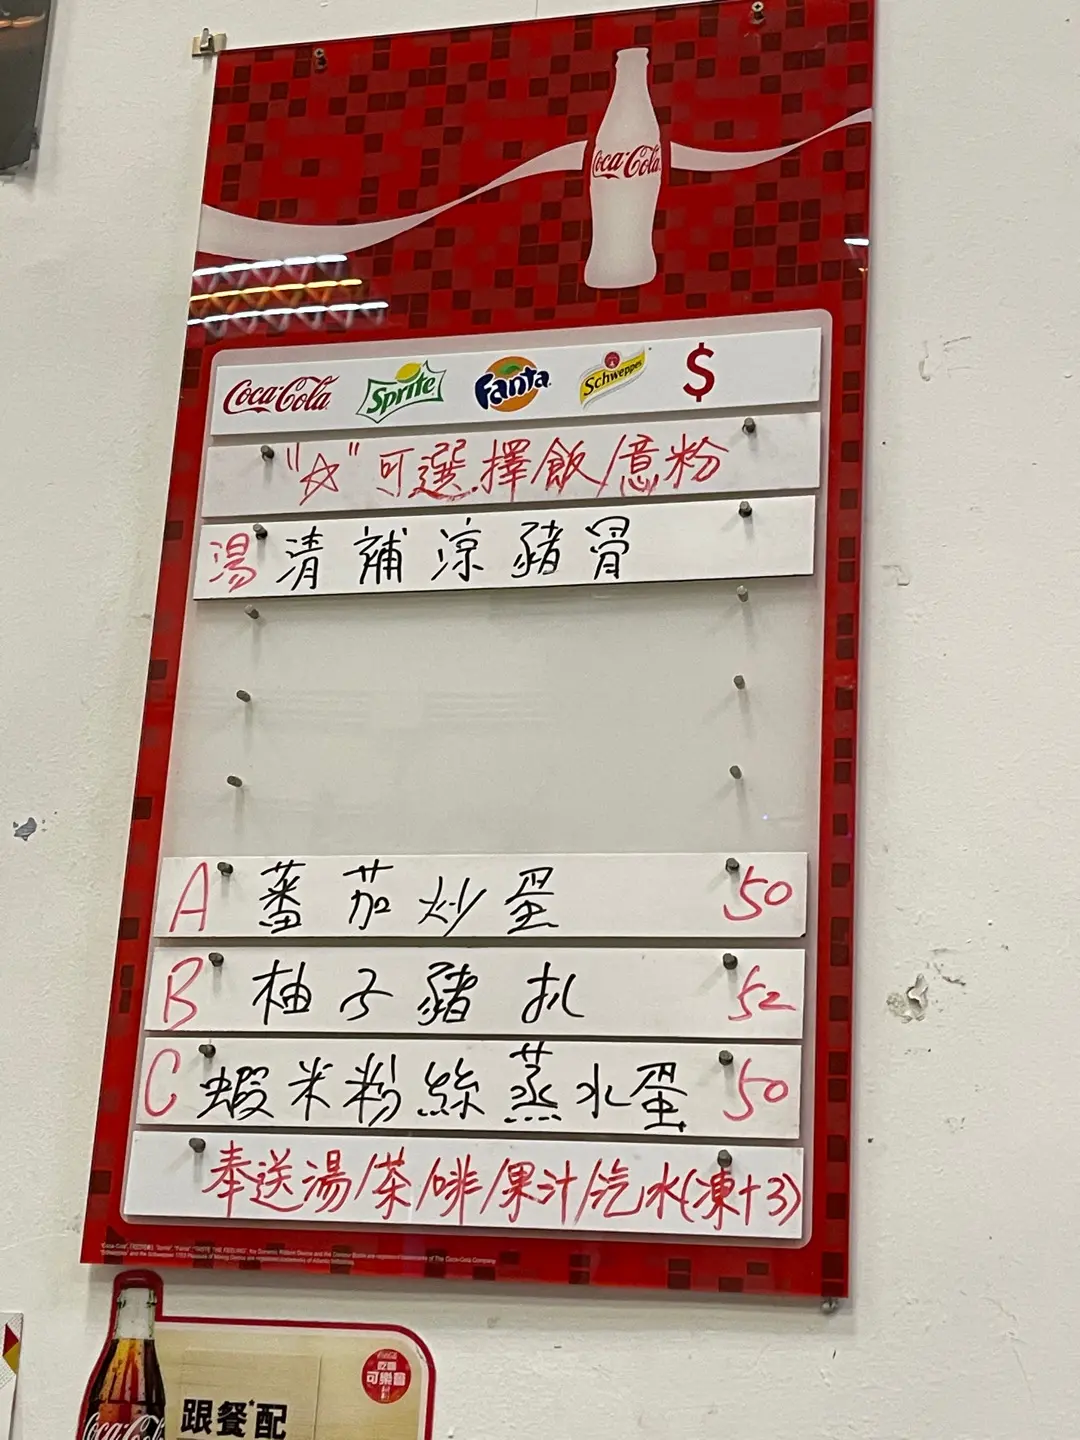 Coca-Cola
Coca-Cola Sprite Fanta Schweppes $
"☆"可選擇飯/意粉
湯 清補涼豬骨
A 蕃茄炒蛋 50
B 柚子豬扒 52
C 蝦米粉絲蒸水蛋 50
奉送湯/茶/啡/果汁/汽水(凍+3)
可樂會
跟餐*配
Coca-Cola